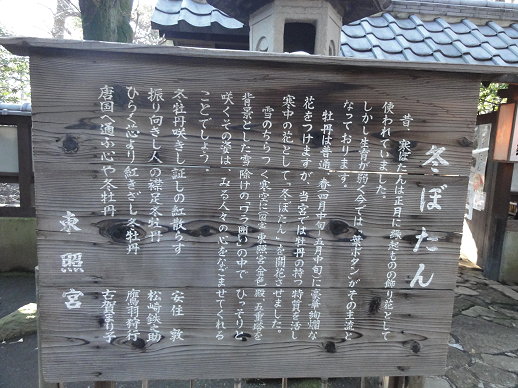 冬ぼたん
昔、寒ぼたんは正月に縁起ものの飾り花として
使われていました。
しかし生育が弱く今では、葉ボタンがその主流と
なっております。
牡丹は普通、春四月中旬〜五月中旬に豪華絢爛な
花をつけますが、当宮では牡丹の持つ特質を活し
寒中の花として「冬ぼたん」を開花させました。
雪のちらつく寒空に国宝東照宮金色殿、五重塔を
背景とした雪除けの「ワラ囲い」の中で、ひっそりと
咲くその姿は、みる人々の心をなごませてくれる
ことでしょう。
冬牡丹咲きし証しの紅散らす 安住 敦
振り向きし人の襟足冬牡丹 松崎鉄之助
ひらく心より紅きざし冬牡丹 鷹羽狩行
唐国へ通ふ心や冬牡丹 古賀まり子
東照宮